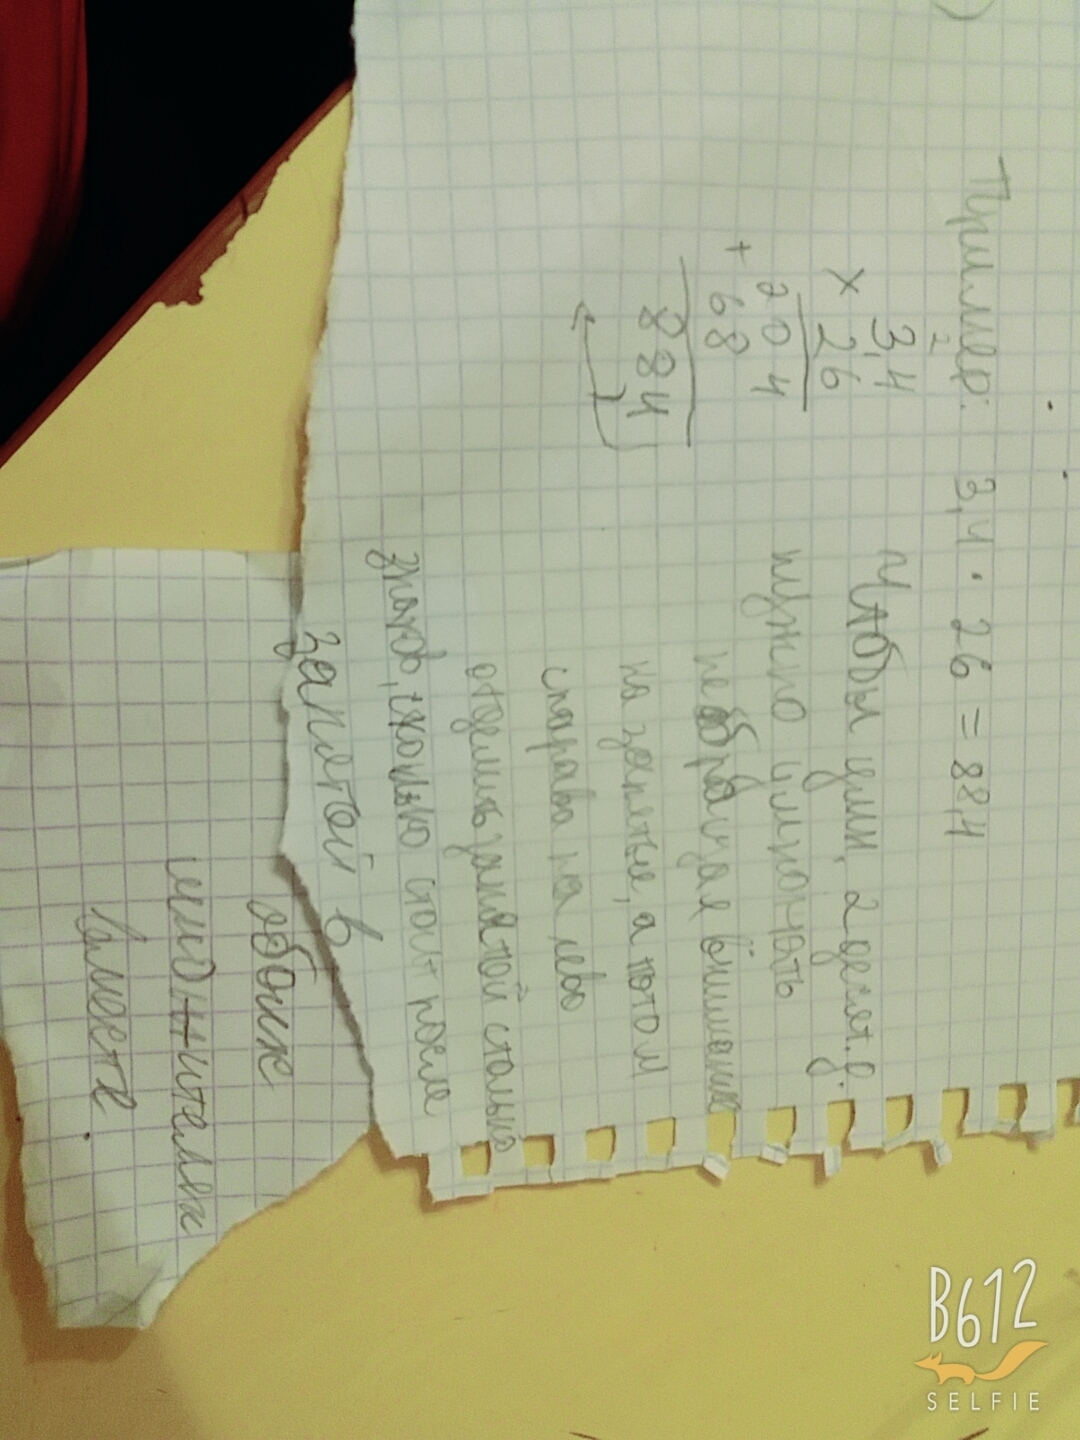 Пример: 3,4 · 26 = 88,4
2
3,4
× 26
204
+ 68
884
Чтобы умн. 2 десят. д.
нужно умножать
не обращая внимание
на запятые, а потом
справа на лево
отделить запятой столько
знаков, сколько стоит после
запятой в
обоих
множителях
вместе.
B612
SELFIE